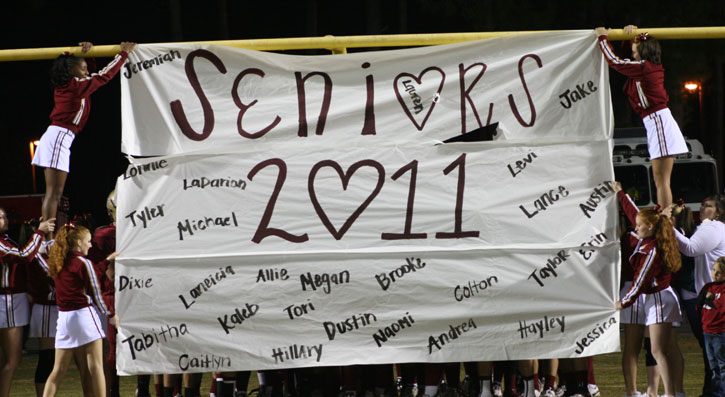 Jeremiah
SENiORS
Lauren
Jake
Lonnie
LaDarion
Levi
2011
Tyler
Michael
Lance
Austin
Dixie
Laneicia
Allie
Megan
Brooke
Colton
Taylor
Erin
Tabitha
Kaleb
Tori
Dustin
Naomi
Andrea
Hayley
Jessica
Caitlyn
Hillary